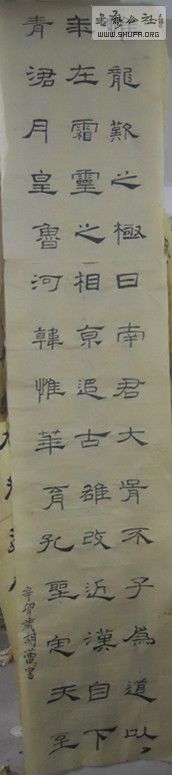 书法公社
WWW.SHUFA.ORG
龍歎之極日南君大胥不子為道以
年在霜靈之相京追古雄改近漢自下
青涒月皇魯河韓惟華育孔聖定天至
辛卯歲胡書